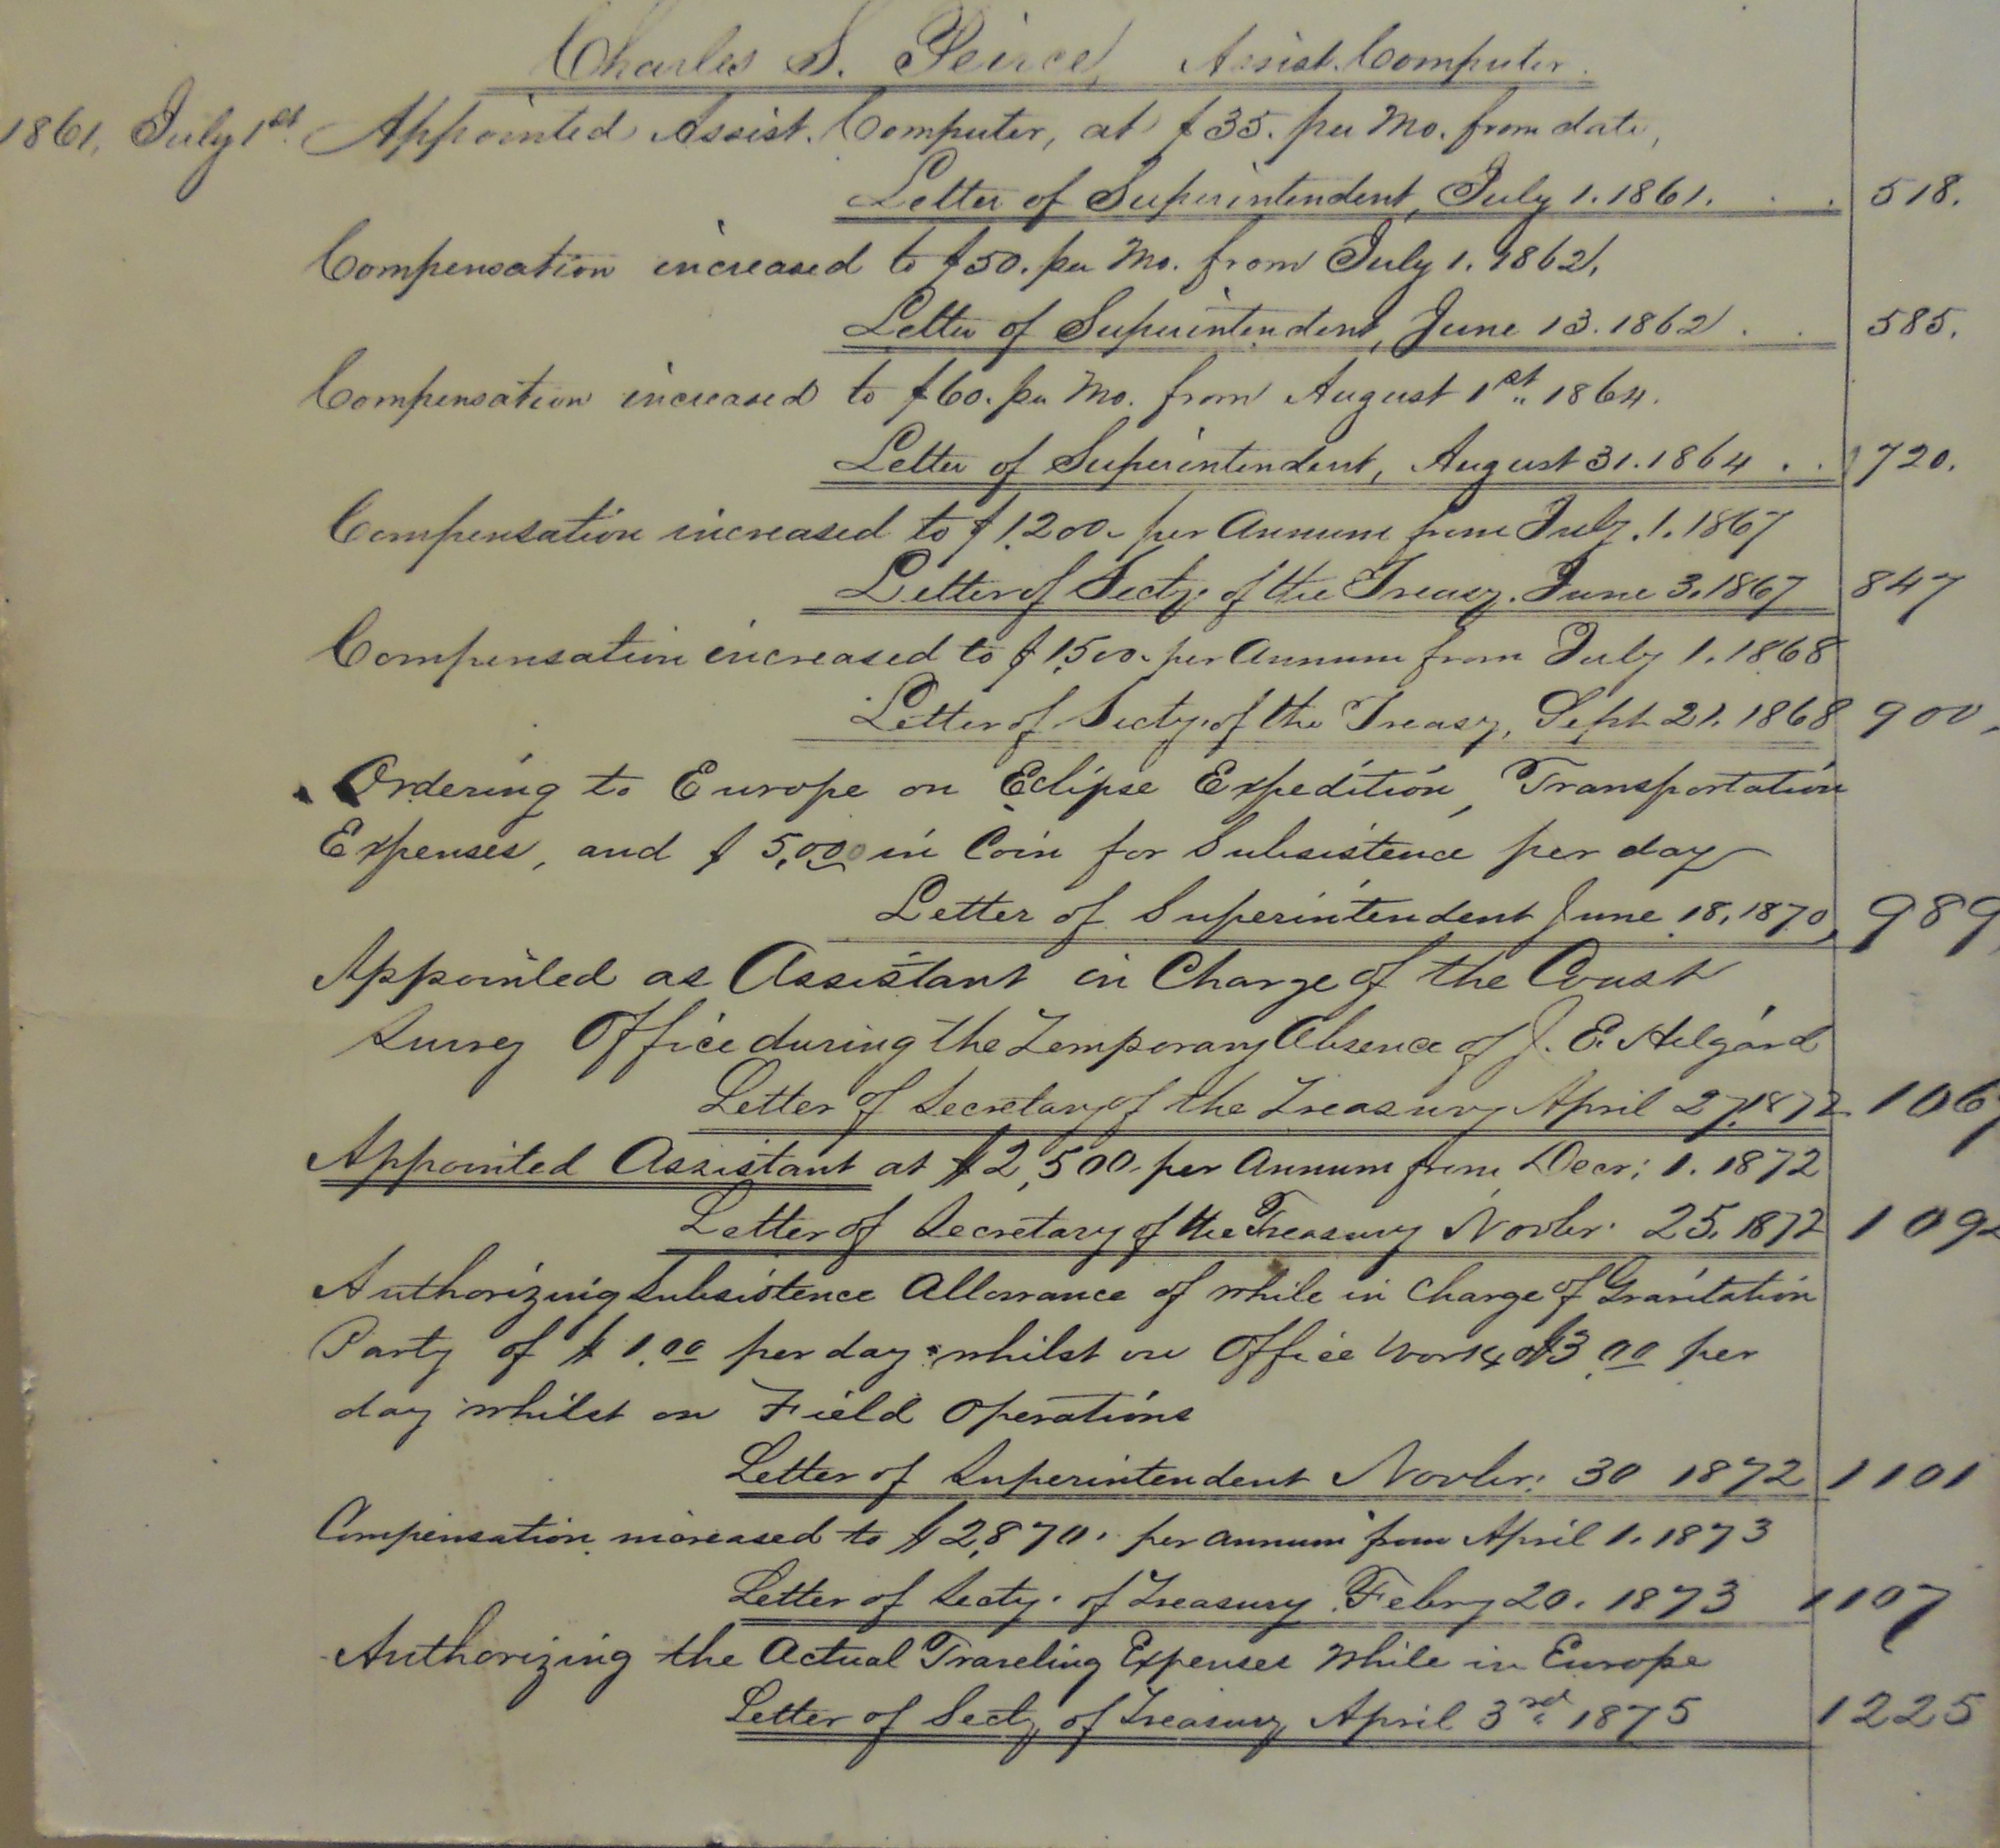 Charles S. Peirce, Assist. Computer.
1861, July 1st. Appointed Assist. Computer, at $35. per Mo. from date,
Letter of Superintendent, July 1. 1861. . . 518.
Compensation increased to $50. per Mo. from July 1. 1862.
Letter of Superintendent, June 13. 1862 . . 585.
Compensation increased to $60. per Mo. from August 1st. 1864.
Letter of Superintendent, August 31. 1864 . . 720.
Compensation increased to $1,200. per Annum from July. 1. 1867
Letter of Secty. of the Treasy. June 3. 1867 847
Compensation increased to $1,500. per Annum from July 1. 1868
Letter of Secty. of the Treasy, Sept. 21. 1868 900.
Ordering to Europe on Eclipse Expedition, Transportation
Expenses, and $5,00 in Coin for Subsistence per day
Letter of Superintendent June 18, 1870, 989
Appointed as Assistant in Charge of the Coast
Survey Office during the Temporary Absence of J. E. Hilgard
Letter of Secretary of the Treasury April 27. 1872 1067
Appointed Assistant at $2,500. per Annum from Decr: 1. 1872
Letter of Secretary of the Treasury Novbr. 25. 1872 1092
Authorizing Subsistence Allowance of while in Charge of Gravitation
Party of $1.00 per day whilst on Office Work & of $3.00 per
day whilst on Field Operations
Letter of Superintendent Novbr: 30 1872 1101
Compensation increased to $2,870. per annum from April 1. 1873
Letter of Secty. of Treasury Febry 20. 1873 1107
Authorizing the Actual Traveling Expenses while in Europe
Letter of Secty of Treasury April 3rd. 1875 1225